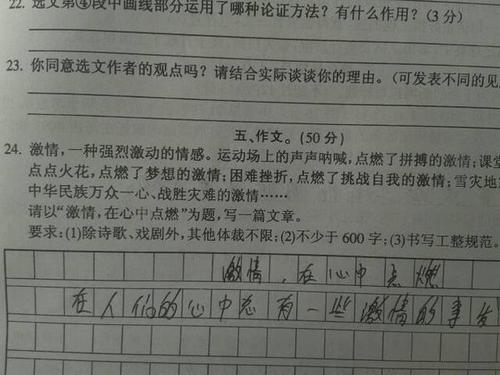 22. 选文第④段中画线部分运用了哪种论证方法？有什么作用？(3分)
23. 你同意选文作者的观点吗？请结合实际谈谈你的理由。(可发表不同的见
五、作文。(50分)
24. 激情，一种强烈激动的情感。运动场上的声声呐喊，点燃了拼搏的激情；课堂
点点火花，点燃了梦想的激情；困难挫折，点燃了挑战自我的激情；雪灾地
中华民族万众一心、战胜灾难的激情……
请以“激情，在心中点燃”为题，写一篇文章。
要求：(1)除诗歌、戏剧外，其他体裁不限；(2)不少于600字；(3)书写工整规范。
激情，在心中点燃
在人们的心中总有一些激情的事发